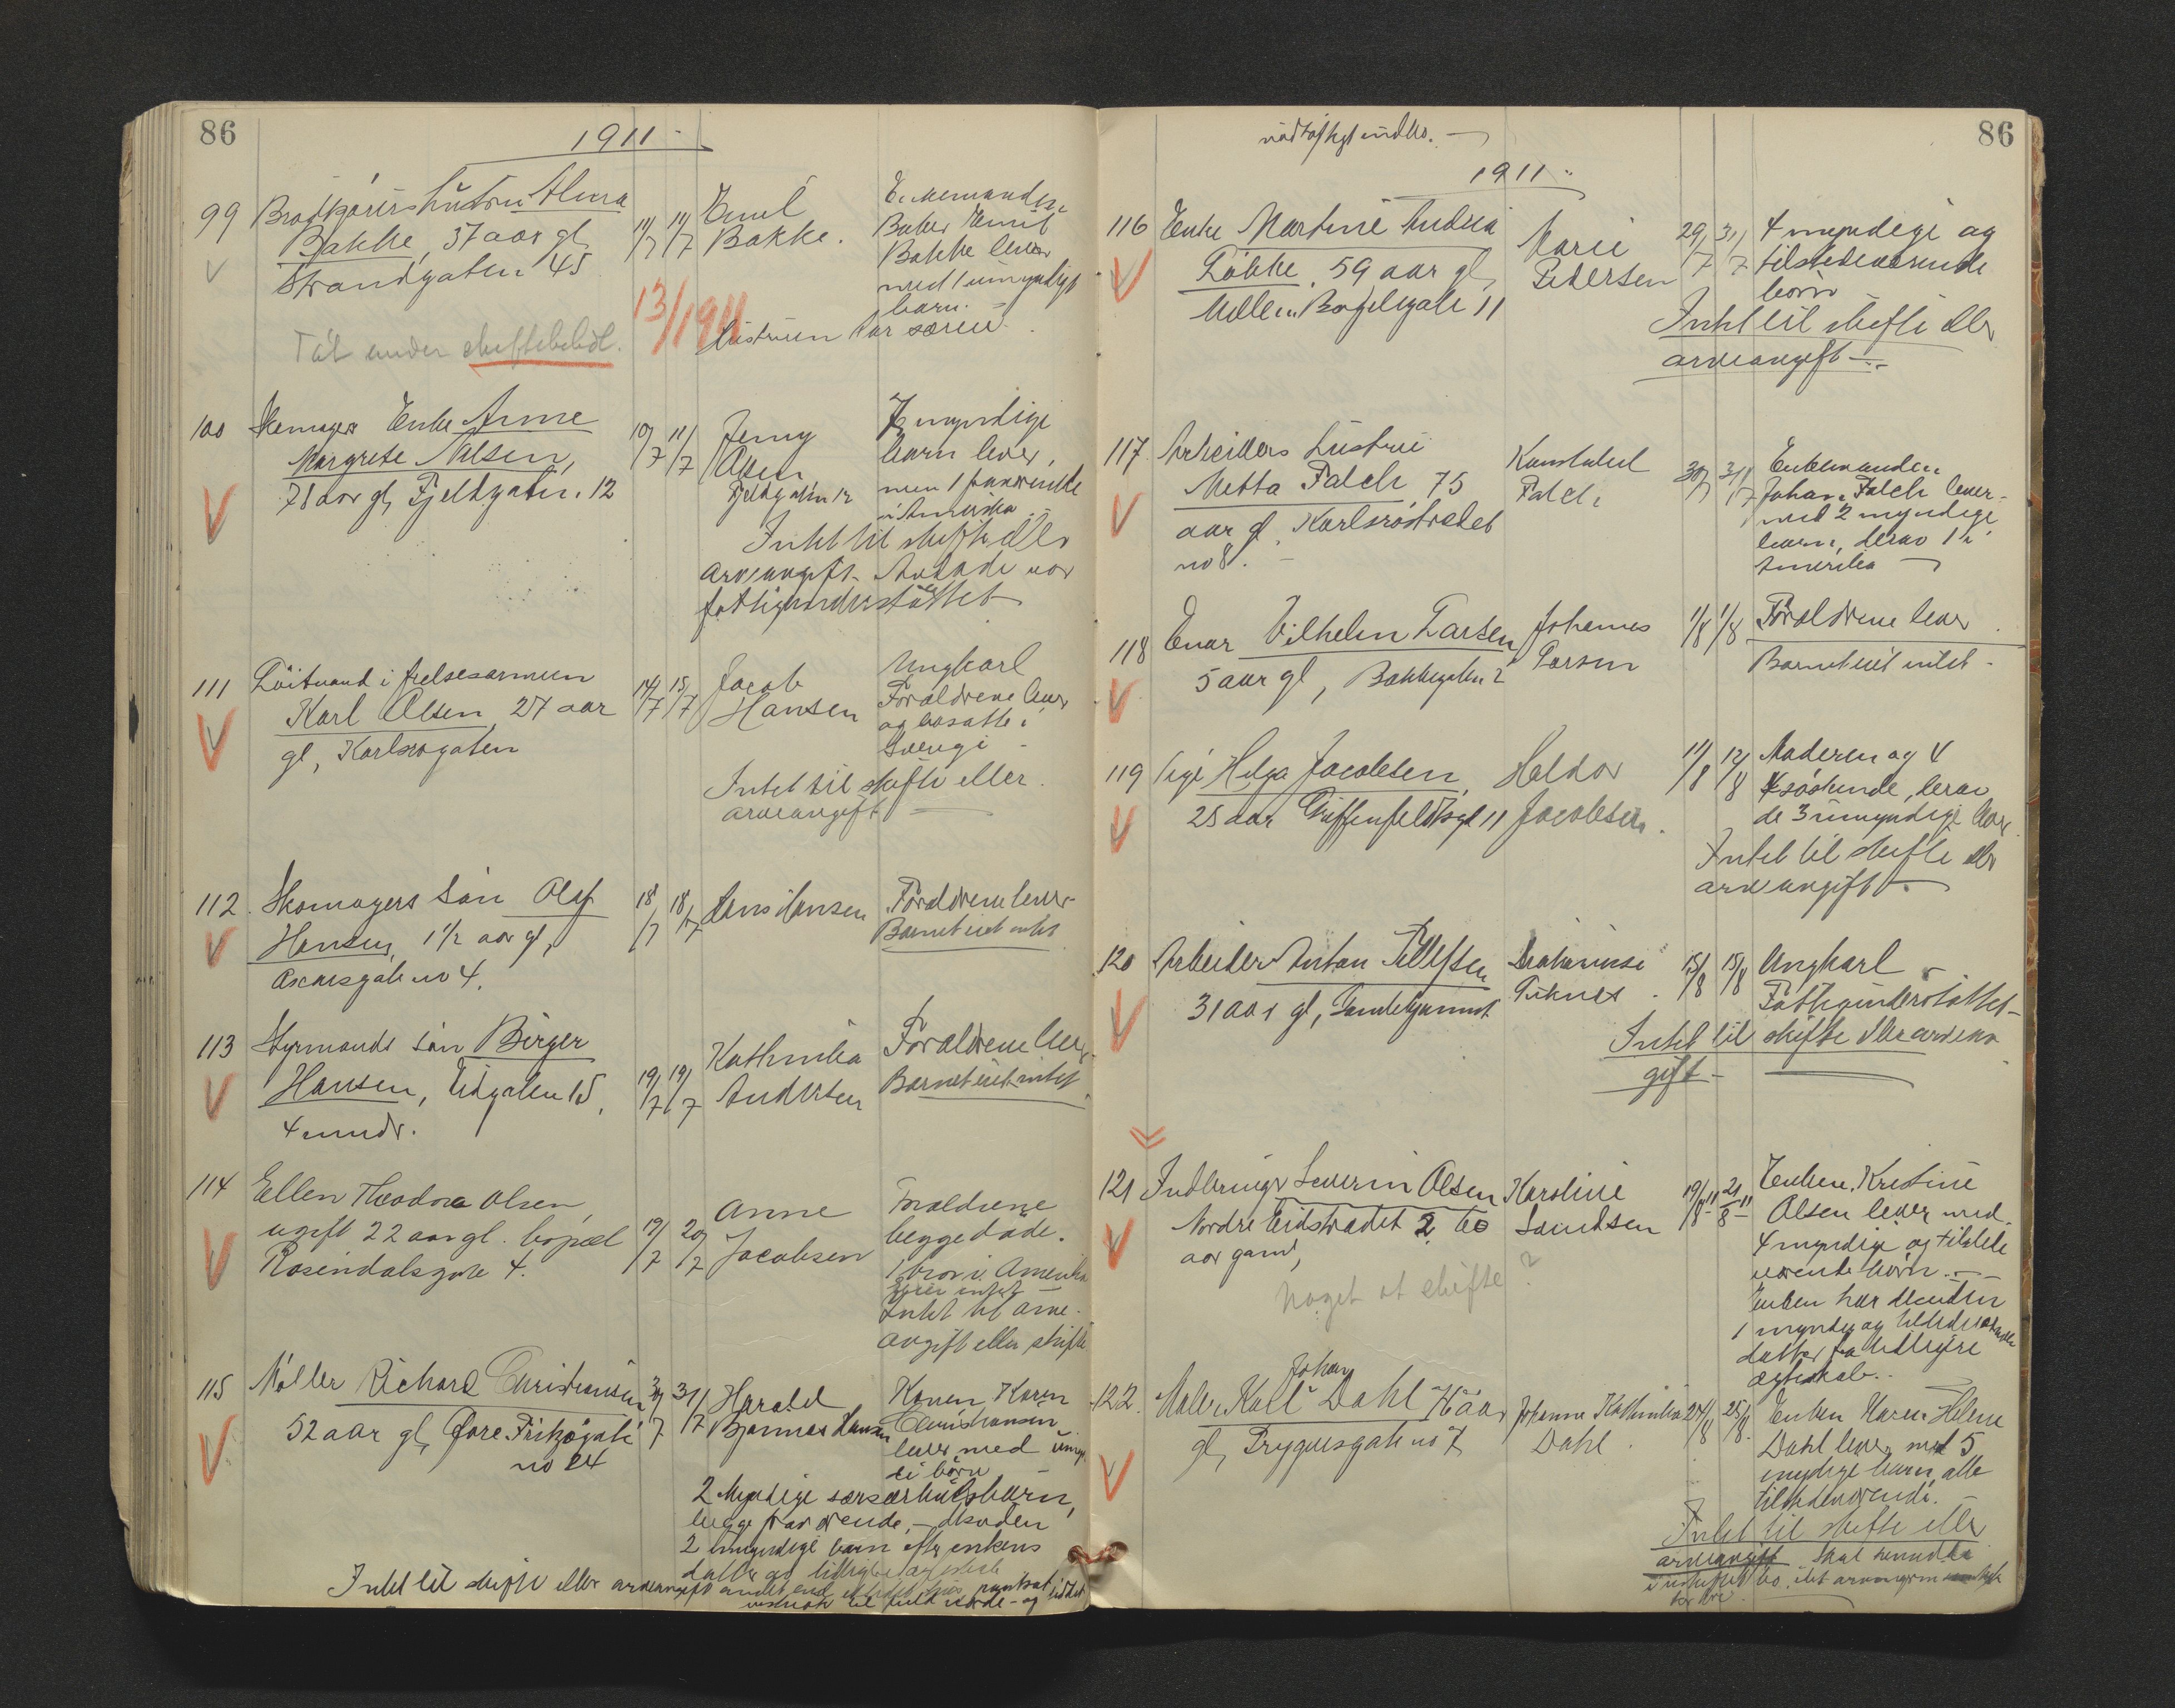 86
1911
99 Brødkjørers hustru Alma
Bakke, 37 aar gl,
Strandgaten 45
11/7 11/7
Emil
Bakke.
Enkemanden
Baker Emil
Bakke lever
med 1 umyndigt
barn.
13/1911
Hustruen har særeie
Tat under skiftebehdl.
100 Skomager Enke Anne
Margrete Nilsen,
78 aar gl, Fjeldgaten 12
10/7 11/7
Jenny
Olsen
Fjeldgaten 12
7 myndige
barn lever,
men 1 fraværende
i Amerika
Intet til skifte eller
arveavgift. Avdøde var
fattigunderstøttet
111 Løitnand i frelsesarmeen
Karl Olsen 27 aar
gl, Karlsrogaten
14/7 15/7
Jacob
Hansen
Ungkarl
Forældrene lever
og bosatte i
Sverige
Intet til skifte eller
arveavgift
112. Skomagers søn Olaf
Hansen, 1 1/2 aar gl,
Aaseesgate no 4.
18/7 18/7
Hans Hansen
Forældrene lever
Barnet eiet intet
113 Styrmands søn Birger
Hansen, Eidgaten 15,
4 mndr.
19/7 19/7
Kathinka
Andersen
Forældrene lever
Barnet eiet intet
114 Ellen Theodora Olsen,
ugift 22 aar gl. bopæl
Rosendalsgate 4.
19/7 20/7
Anne
Jacobsen
Forældrene
begge døde.
1 bror i Amerika
Eier intet
Intet til arve-
avgift eller skifte
115 Møller Richard Christiansen
52 aar gl, Øvre Fritzøgate
no 24
30/7 31/7
Harald
Bjarmar Hansen
Konen Karen
Christiansen
lever med umyn-
di børn
2 Myndige særskuldsbarn,
begge fraværende, – desuden
2 umyndige barn efter enkens
datter av tidligere ægteskab
Intet til skifte eller arveavgift
86
nødtørftigt indbo. –
1911
116 Enke Martine Andrea
Løkke, 59 aar gl,
Mellem Bøgeligate 11
Marie
Pedersen
29/7 31/7
4 myndige og
tilstedeværende
børn
Intet til skifte eller
arveavgift
117 Arbeiders hustru
Metta Falch, 75
aar gl, Karlsrostrædet
no 8.
Konstabel
Falch
30/7 31/7
Enkemanden
Johan Falch lever
med 2 myndige
barn, derav 1 i
Amerika
118 Einar Vilhelm Larsen
5 aar gl, Bakkegaten 2
Johannes
Larsen
1/8 1/8
Forældrene lever
Barnet eiet intet
119 Pige Helga Jacobsen,
25 aar Griffenfeldtsgt 11
Haldor
Jacobsen.
11/8 12/8
Moderen og 4
søskende, derav
de 3 umyndige lever
Intet til skifte eller
arveavgift
120 Arbeider Anton Tellefsen
31 aar gl, Gamlehjemmet
15/8 15/8
Ungkarl
Fattigunderstøttet
Intet til skifte eller arveav
gift
121 Indbringer Severin Olsen
Nordre Eidstrædet 2, 60
aar gaml,
Karoline
Lauritsen
19/8 11 21/8 11
Enken Kristine
Olsen lever med
4 myndige og tilstede
værende børn.
Enken har desuden
1 myndig og tilstedeværende
datter fra tidligere
ægteskab.
Noget at skifte?
122. Maler Karl Johan Dahl 74 aar
gl, Tryggvesgate no 7
Johanne Kathinka
Dahl
24/8 25/8
Enken Karen Helene
Dahl lever med 5
myndige barn, alle
tilstedeværende.
Intet til skifte eller
arveavgift